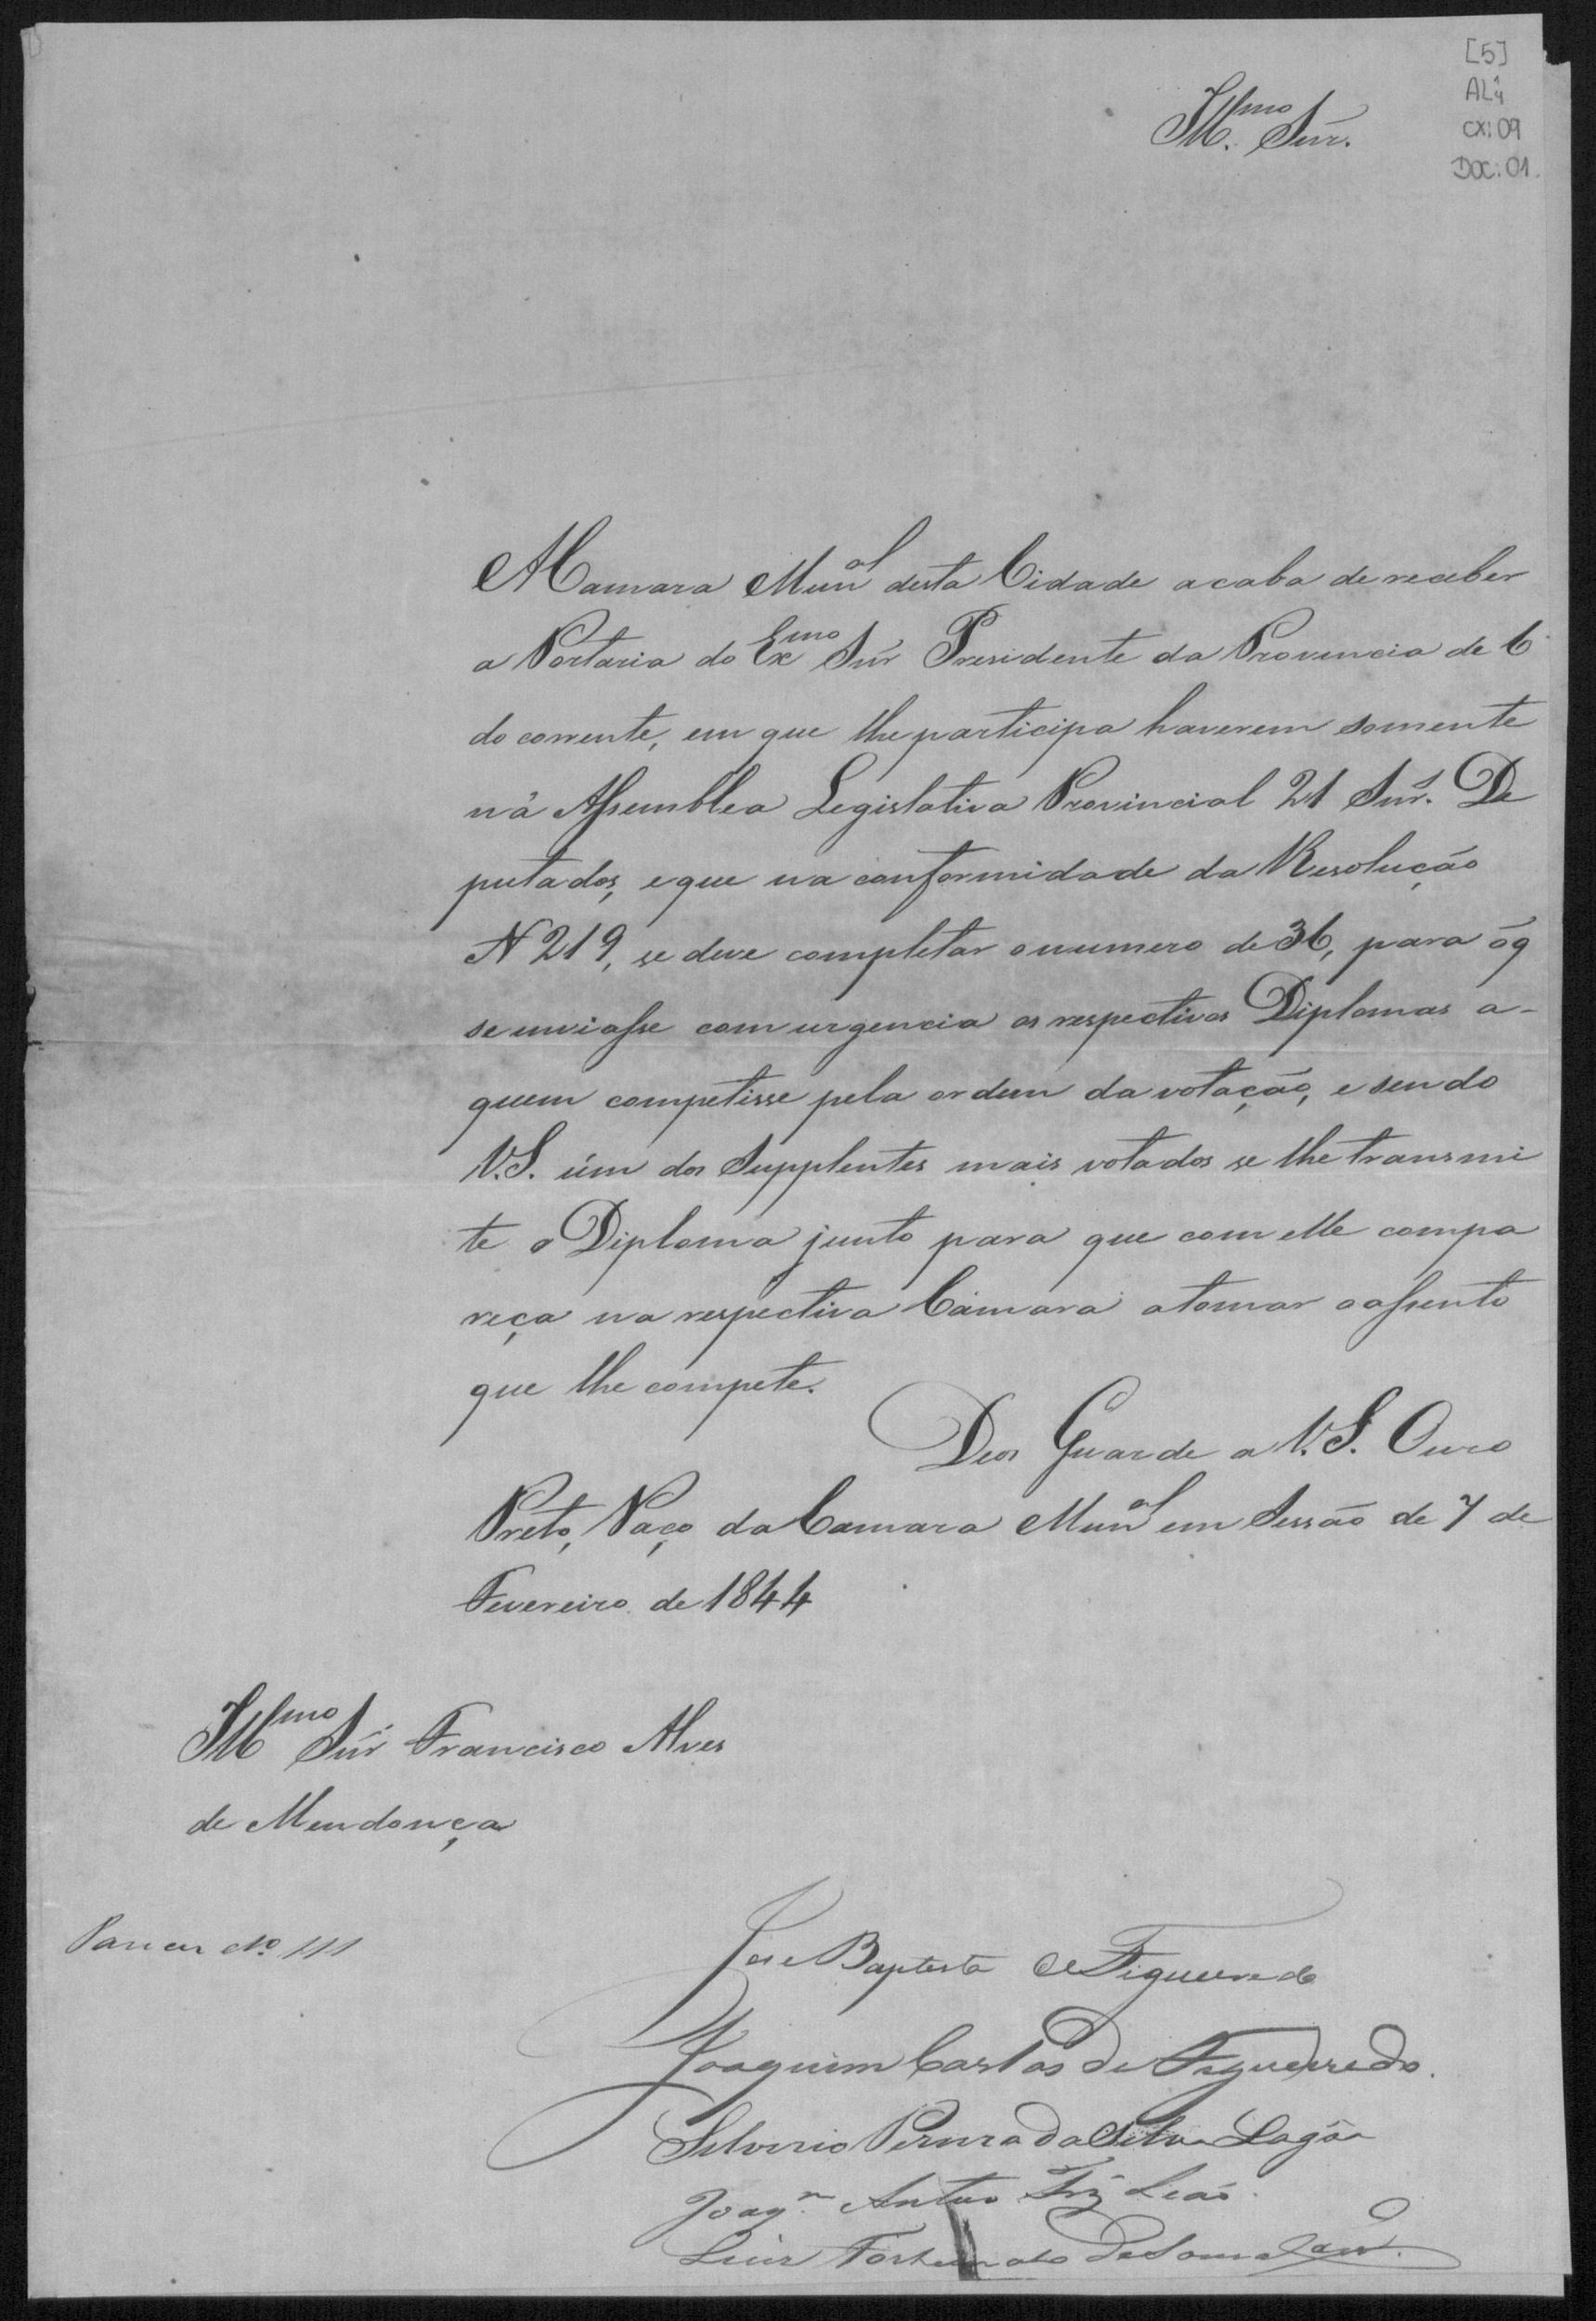 [5]
AL 1/4
CX: 09
DOC: 01.
Ill.mo Snr.
A Camara Mun.al desta Cidade acaba de receber
a Portaria do Ex.mo Snr Presidente da Provincia de 6
do corrente, em que lhe participa haverem somente
nà Assemblea Legislativa Provincial 21 Snr.s De
putados, e que na conformidade da Resolução
N 219, se deve completar o numero de 36, para o q
se enviasse com urgencia os respectivos Diplomas a-
quem competisse pela ordem da votação, e sendo
V.S. úm dos Supplentes mais votados se lhe transmi
te o Diploma junto para que com elle compa
reça na respectiva Camara a tomar o assento
que lhe compete.
Deos Guarde a V.S. Ouro
Preto, Paço da Camara Mun.al em Sessão de 7 de
Fevereiro de 1844
Ill.mo Snr Francisco Alves
de Mendonça
Parecer No. 111
Jose Baptista de Figueiredo
Joaquim Carlos de Figueiredo.
Silverio Pereira da Silva Lagôa
Joaq.m Antão Frz Leão.
Luis Fortunato de Souza